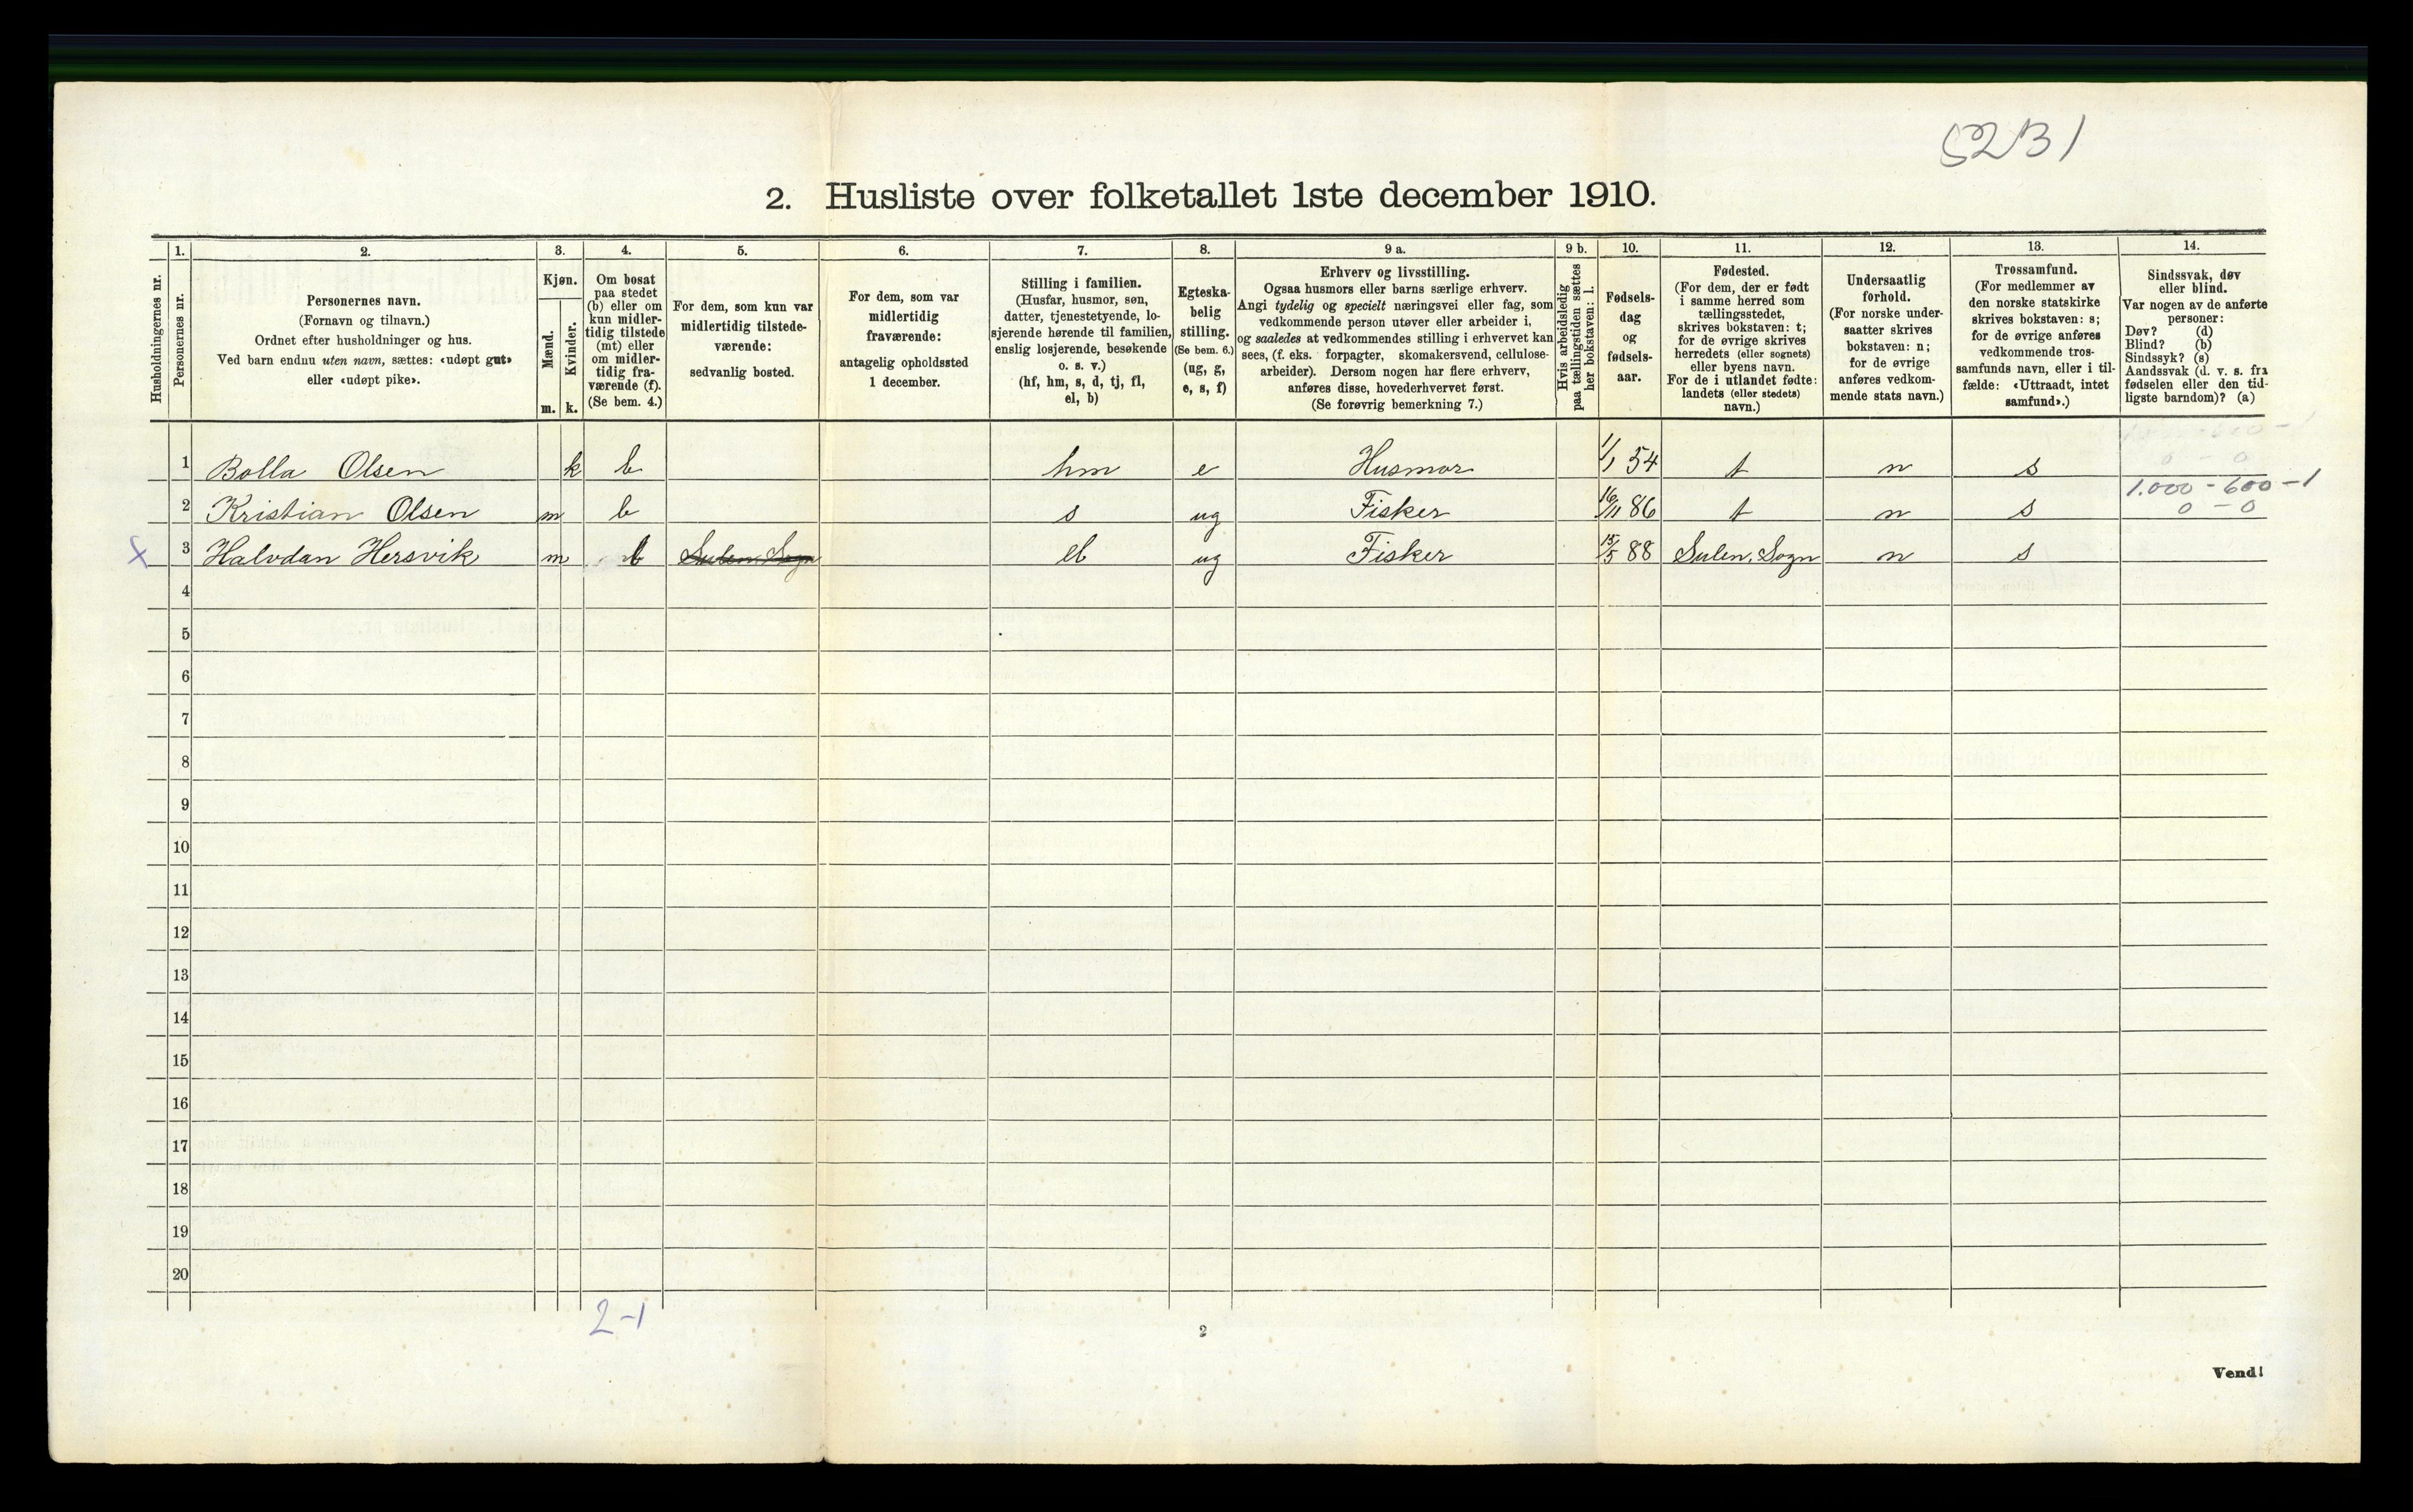 5231
2. Husliste over folketallet 1ste december 1910.
Husholdningernes nr.
1.
Personernes nr.
2.
Personernes navn.
(Fornavn og tilnavn.)
Ordnet efter husholdninger og hus.
Ved barn endnu uten navn, sættes: «udøpt gut»
eller «udøpt pike».
3.
Kjøn.
Mænd.
Kvinder.
m. k.
4.
Om bosat
paa stedet
(b) eller om
kun midler-
tidig tilstede
(mt) eller
om midler-
tidig fra-
værende (f).
(Se bem. 4.)
5.
For dem, som kun var
midlertidig tilstede-
værende:
sedvanlig bosted.
6.
For dem, som var
midlertidig
fraværende:
antagelig opholdssted
1 december.
7.
Stilling i familien.
(Husfar, husmor, søn,
datter, tjenestetyende, lo-
sjerende hørende til familien,
enslig losjerende, besøkende
o. s. v.)
(hf, hm, s, d, tj, fl,
el, b)
8.
Egteska-
belig
stilling.
(Se bem. 6.)
(ug, g,
e, s, f)
9 a.
Erhverv og livsstilling.
Ogsaa husmors eller barns særlige erhverv.
Angi tydelig og specielt næringsvei eller fag, som
vedkommende person utøver eller arbeider i,
og saaledes at vedkommendes stilling i erhvervet kan
sees, (f. eks. forpagter, skomakersvend, cellulose-
arbeider). Dersom nogen har flere erhverv,
anføres disse, hovederhvervet først.
(Se forøvrig bemerkning 7.)
9 b.
Hvis arbeidsledig
paa tællingstiden sættes
her bokstaven: l.
10.
Fødsels-
dag
og
fødsels-
aar.
11.
Fødested.
(For dem, der er født
i samme herred som
tællingsstedet,
skrives bokstaven: t;
for de øvrige skrives
herredets (eller sognets)
eller byens navn.
For de i utlandet fødte:
landets (eller stedets)
navn.)
12.
Undersaatlig
forhold.
(For norske under-
saatter skrives
bokstaven: n;
for de øvrige
anføres vedkom-
mende stats navn.)
13.
Trossamfund.
(For medlemmer av
den norske statskirke
skrives bokstaven: s;
for de øvrige anføres
vedkommende tros-
samfunds navn, eller i til-
fælde: «Uttraadt, intet
samfund».)
14.
Sindssvak, døv
eller blind.
Var nogen av de anførte
personer:
Døv? (d)
Blind? (b)
Sindssyk? (s)
Aandssvak (d. v. s. fra
fødselen eller den tid-
ligste barndom)? (a)
1 Bolla Olsen k b hm e Husmor 1/1 54 t n s
0 - 0
1.000 - 600 - 1
2 Kristian Olsen m b s ug Fisker 16/11 86 t n s 0 - 0
x 3 Halvdan Hersvik m b Sulen Sogn el ug Fisker 15/5 88 Sulen, Sogn n s
4
5
6
7
8
9
10
11
12
13
14
15
16
17
18
19
20
2-1
2
Vend!